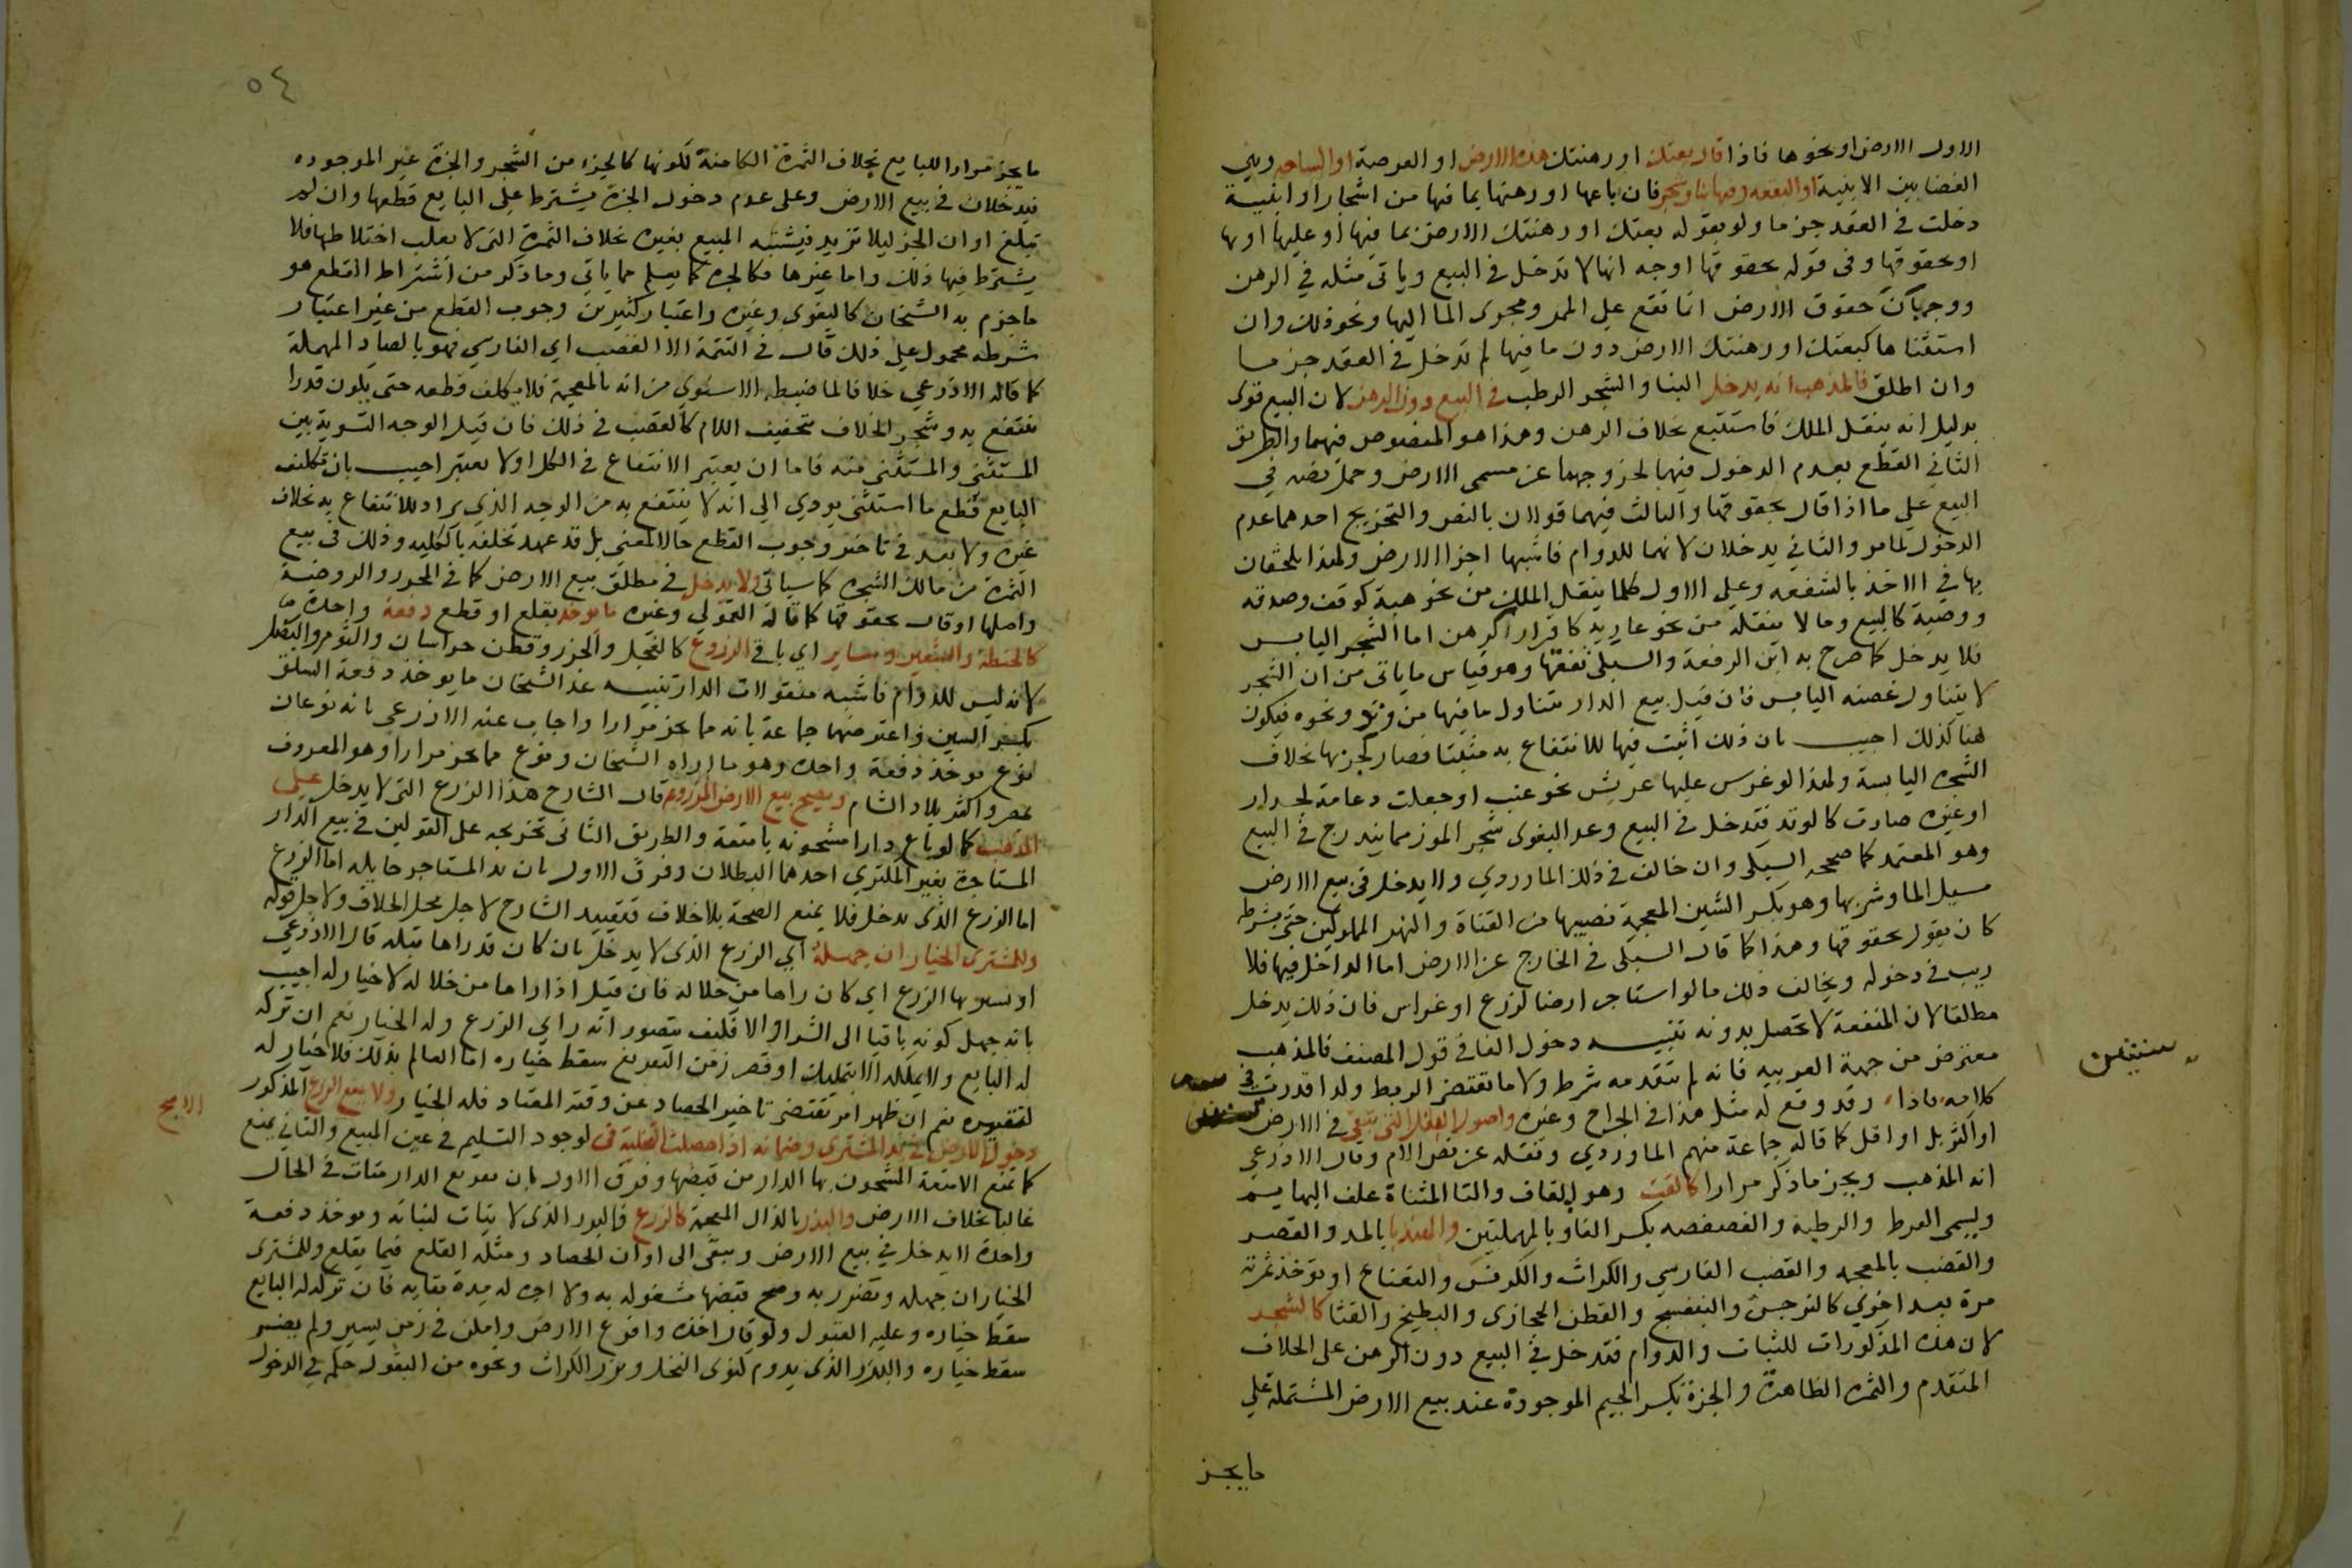 الاول الارض او نحوها فاذا قال بعتك او رهنتك هذه الارض او العرصة او الساحه وهي
الفضا بين الابنية او البقعه وفيها بنا وشجر فان باعها او رهنها بما فيها من اشجار او ابنية
دخلت في العقد جزما ولو بقوله بعتك او رهنتك الارض بما فيها او عليها او بها
او بحقوقها وفي قوله بحقوقها اوجه انها لا تدخل في البيع وياتي مثله في الرهن
حقوق الارض انما تقع على الممر ومجرى الما اليها ونحو ذلك وان
استثناها كبعتك او رهنتك الارض دون ما فيها لم تدخل في العقد جزما
وان اطلق فالمذهب انه يدخل البنا والشجر الرطب في البيع دون الرهن لان البيع قوى
بدليل انه ينقل الملك فاستتبع بخلاف الرهن وهذا هو المنصوص فيهما والطريق
الثاني القطع بعدم الدخول فيهما لخروجهما عن مسمى الارض وحمل نصه في
البيع على ما اذا قال بحقوقها والثالث فيهما قولان بالنص والتخريج احدهما عدم
الدخول لما مر والثاني يدخلان لانهما للدوام فاشبها اجزا الارض ولهذا يلحقان
بها في الاخذ بالشفعه وعلى الاول كلما ينقل الملك من نحو هبة كوقف وصدقه
ووصية كالبيع وما لا ينقله من نحو عارية كاقرار كرهن اما الشجر اليابس
فلا يدخل كما صرح به ابن الرفعة والسبكي تفقها وهو قياس ما ياتي من ان الشجر
لا يتناول غصنه اليابس فان قيل بيع الدار يتناول ما فيها من وتد ونحوه فيكون
هنا كذلك اجيب بان ذلك اثبت فيها للانتفاع به مثبتا فصار كجزئها بخلاف
الشجرة اليابسة ولهذا لو غرس عليها عريش نحو عنب او جعلت دعامة لجدار
او غيره صارت كالوتد فتدخل في البيع وعد البغوى شجر الموز مما يندرج في البيع
وهو المعتمد كما صححه السبكي وان خالف في ذلك الماوردي ولا يدخل في بيع الارض
مسيل الما وشربها وهو بكسر الشين المعجمة نصيبها من القناة والنهر المملوكين حتى يشرطه
كان يقول بحقوقها وهذا كما قال السبكى في الخارج عن الارض اما الداخل فيها فلا
ريب في دخوله ويخالف ذلك ما لو استاجر ارضا لزرع او غراس فان ذلك يدخل
مطلقا لان المنفعة لا تحصل بدونه تنبيه دخول الفا في قول المصنف فالمذهب
معترض من جهة العربيه فانه لم يتقدمه شرط ولا ما يقتضي الربط ولذا قدرت في
كلامه فاذا وقد وقع له مثل هذا في الجراح وغيره واصول البقل التي تبقى في الارض
سنتين
او اكثر بل او اقل كما قاله جماعة منهم الماوردي ونقله عن نص الام وقال الاذرعي
انه المذهب ويجز ما ذكر مرارا كالقت وهو بالقاف والتا المثناة علف البهايم
ويسمى القرط والرطبة والفصفصه بكسر الفا وبالمهملتين والهندبا بالمد والقصر
والقضب بالمعجمه والقصب الفارسي والكراث والكرفس والنعناع او تؤخذ ثمرته
مرة بعد اخرى كالنرجس والبنفسج والقطن الحجازى والبطيخ والقثا كالشجر
لان هذه المذكورات للثبات والدوام فتدخل في البيع دون الرهن على الخلاف
المتقدم والثمره الظاهرة والجزة بكسر الجيم الموجودة عند بيع الارض المشتملة على
ما يجز
٥٤
ما يجز مرارا للبايع بخلاف الثمرة الكامنة لكونها كالجزء من الشجر والجزة غير الموجوده
فيدخلان في بيع الارض وعلى عدم دخول الجزة يشترط على البايع قطعها وان لم
تبلغ اوان الجز ليلا تزيد فيشتبه المبيع بغيره بخلاف الثمرة التى لا يغلب اختلاطها فلا
يشترط فيها ذلك واما غيرها فكالجزة كما يعلم مما ياتي وما ذكر من اشتراط القطع هو
ما جزم به الشيخان كالبغوي وغيره واعتبار كثيرين وجوب القطع من غير اعتبار
شرطه محمول على ذلك قال في التتمة الا القصب اي الفارسي فهو بالصاد المهملة
كما قاله الاذرعي خلافا لما ضبطه الاسنوي من انه بالمعجمة فلا يكلف قطعه حتى يكون قدرا
ينتفع به وشجر الخلاف بتخفيف اللام كالقصب في ذلك فان قيل الوجه التسوية بين
المستثنى والمستثنى منه فاما ان يعتبر الانتفاع في الكل او لا يعتبر اجيب بان تكليف
البايع قطع ما استثنى يودي الى انه لا ينتفع به من الوجه الذي يراد للانتفاع به بخلاف
غيره ولا بعد في تاخير وجوب القطع حالا لمعنى بل قد عهد تخلفه بالكليه وذلك في بيع
الثمرة من مالك الشجرة كما سياتى ولا يدخل في مطلق بيع الارض كما في المحرر والروضة
واصلها او قال بحقوقها كما قاله القمولي وغيره ما يوخذ بقلع او قطع دفعة واحدة
كالحنطة والشعير وساير اي باقي الزروع كالفجل والجزر وقطن خراسان والثوم والبصل
لانه ليس للدوام فاشبه منقولات الدار تنبيه عد الشيخان مما يوخذ دفعة السلق
بكسر السين واعترضهما جماعة بانه مما يجز مرارا واجاب عنه الاذرعي بانه نوعان
نوع يوخذ دفعة واحدة وهو ما اراه الشيخان ونوع مما يجز مرارا وهو المعروف
بمصر واكثر بلاد الشام ويصح بيع الارض المزروعة قال الشارح هذا الزرع التى لا يدخل على
المذهب كما لو باع دارا مشحونه بامتعة والطريق الثاني تخريجه على القولين في بيع الدار
المستاجرة بغير المكتري احدهما البطلان وفرق الاول بان يد المستاجر حايلة اما الزرع
اما الزرع الذى يدخل فلا يمنع الصحة بلا خلاف فتقييد الشارح لاجل محل الخلاف ولاجل قوله
وللمشترى الخيار ان جهله اي الزرع الذى لا يدخل بان كان قد راها قبله قال الاذرعي
او نسوبها الزرع اي كان راها من خلاله فان قيل اذا راها من خلاله لا خيار له اجيب
بانه جهل كونه باقيا الى الشرا والا فكيف يتصور انه راى الزرع وله الخيار نعم ان تركه
له البايع ولا يملكه الا بتمليك او قصر زمن التفريغ سقط خياره اما العالم بذلك فلا خيار له
لتقصيره نعم ان ظهر امر يقتضي تاخير الحصاد عن وقته المعتاد فله الخيار ولا يمنع الزرع المذكور
الاصح
دخول الارض في يد المشترى وضمانه اذا حصلت التخلية في لوجود التسليم في عين المبيع والثاني يمنع
كما تمنع الامتعة المشحون بها الدار من قبضها وفرق الاول بان تفريغ الدار متات في الحال
غالبا بخلاف الارض والبذر بالذال المعجمة كالزرع فالبذر الذى لا ثبات لنباته ويوخذ دفعة
واحدة لا يدخل في بيع الارض ويبقى الى اوان الحصاد ومثله القلع فيما يقلع وللمشترى
الخيار ان جهله وتضرر به وصح قبضها مشغوله به ولا اجرة له مدة بقايه فان تركه له البايع
سقط خياره وعليه القبول ولو قال اخذه وافرغ الارض وامكن في زمن يسير ولم يضر
سقط خياره والبذر الذى يدوم كنوى النخل وبزر الكراث ونحوه من البقول حكمه في الدخول